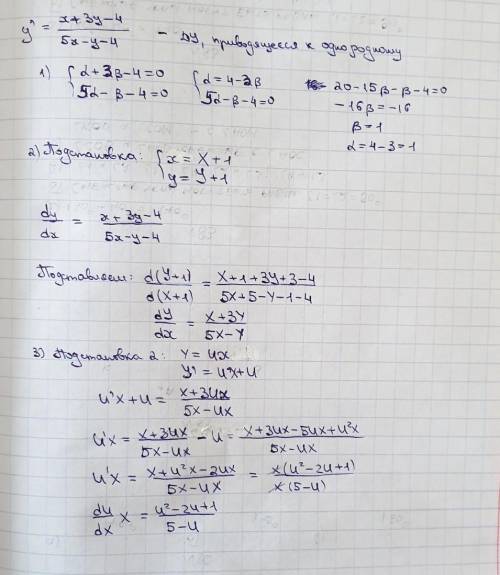 y' = (x+3y-4)/(5x-y-4) - ДУ, приводящееся к однородному
1) { α+3β-4=0 { α=4-3β 20-15β-β-4=0
{ 5α-β-4=0 { 5α-β-4=0 -16β=-16
β=1
α=4-3=1
2) Подстановка: { x = X+1
{ y = Y+1
dy/dx = (x+3y-4)/(5x-y-4)
Подставляем: d(Y+1)/d(X+1) = (X+1+3Y+3-4)/(5X+5-Y-1-4)
dY/dX = (X+3Y)/(5X-Y)
3) Подстановка 2: Y = UX
Y' = U'X+U
U'X+U = (X+3UX)/(5X-UX)
U'X = (X+3UX)/(5X-UX) - U = (X+3UX-5UX+U²X)/(5X-UX)
U'X = (X+U²X-2UX)/(5X-UX) = X(U²-2U+1)/X(5-U)
dU/dX X = (U²-2U+1)/(5-U)